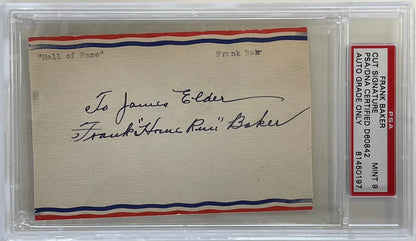 "Hall of Fame" Frank Bakr
To James Elder
Frank "Home Run" Baker
PSA
FRANK BAKER
CUT SIGNATURE
PSA/DNA CERTIFIED D60842
AUTO GRADE ONLY
MINT 9
81450197